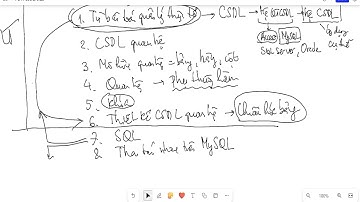 1. Từ bài toán quản lý → CSDL → hệ QTCSDL → hệ CSDL
Access MySQL
SQL Server, Oracle
2. CSDL quan hệ
3. Mô hình quan hệ - bảng, hàng, cột
4. Quan hệ →
5. khóa
6. Thiết kế CSDL quan hệ → Chuẩn hóa bảng
7. SQL
8. MySQL